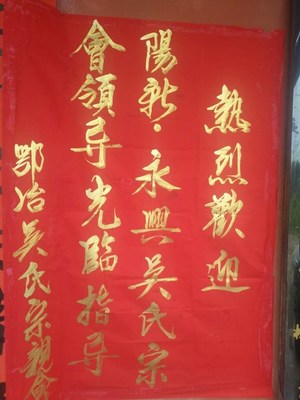 熱烈歡迎
陽新·永興吴氏宗
會領导光臨指导
鄂冶吴氏宗親會